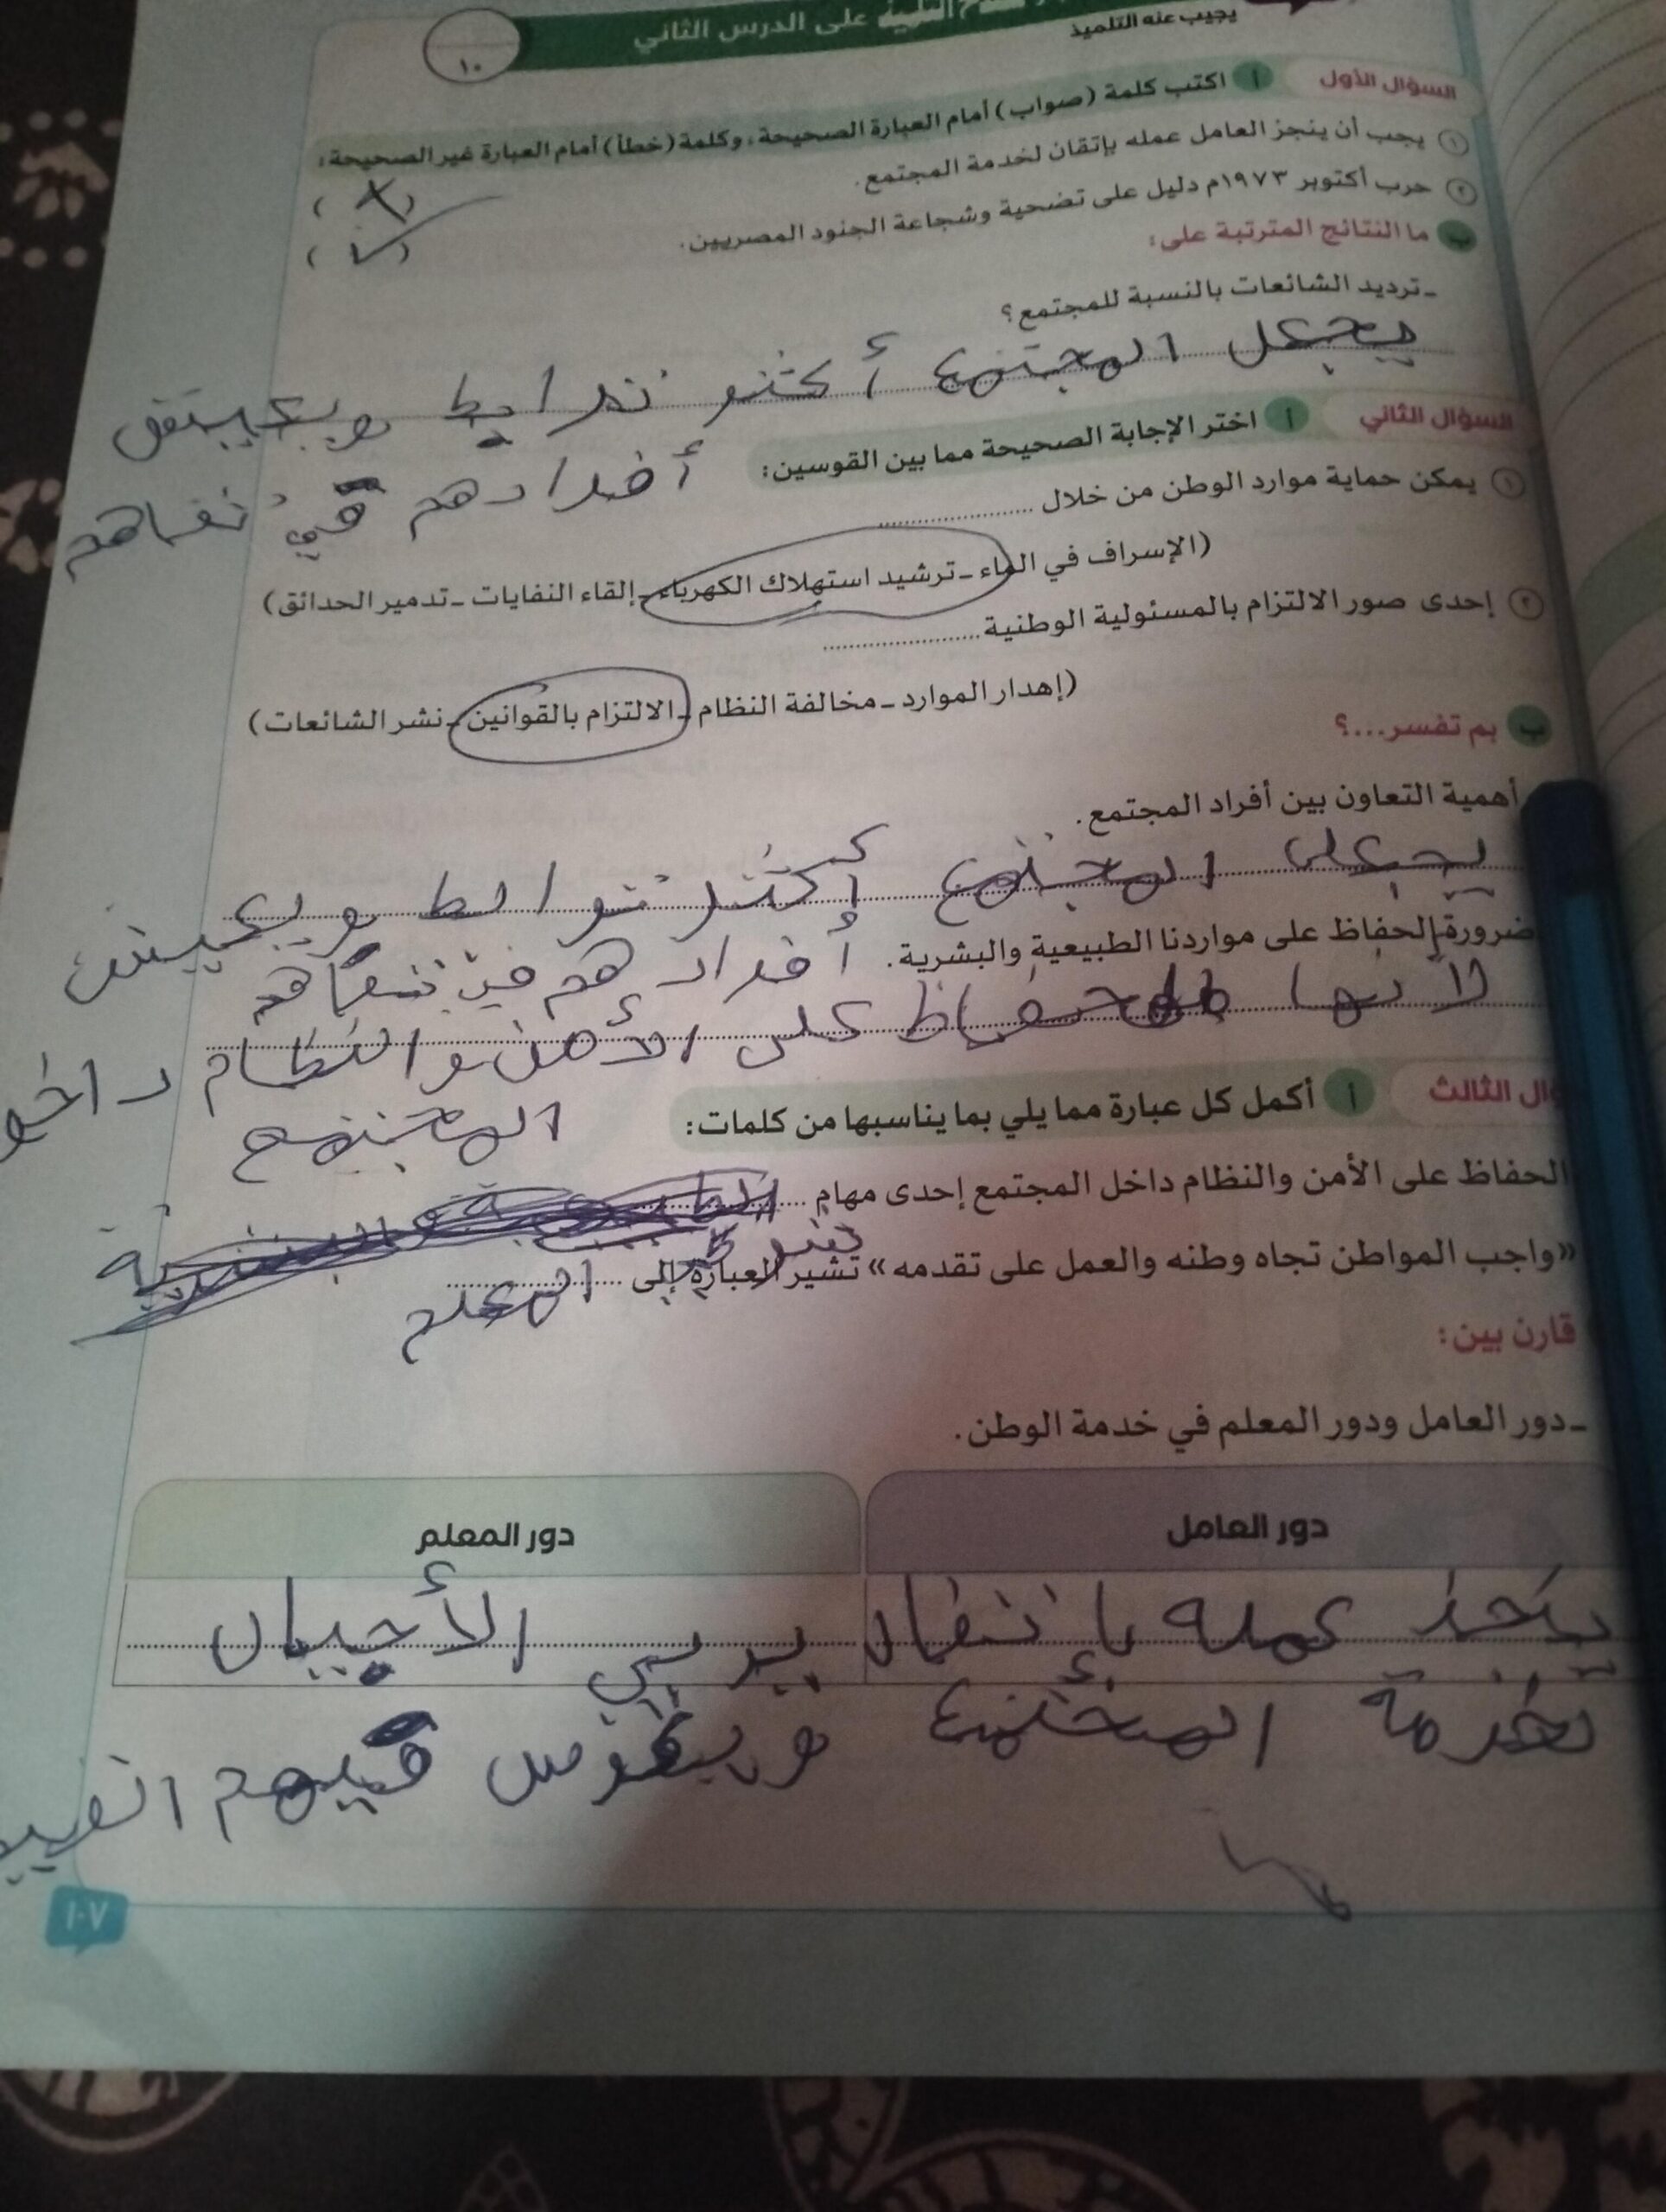 على الدرس الثاني
١٠
يجيب عنه التلميذ
السؤال الأول أ اكتب كلمة (صواب) أمام العبارة الصحيحة، وكلمة (خطأ) أمام العبارة غير الصحيحة:
١ يجب أن ينجز العامل عمله بإتقان لخدمة المجتمع.
٢ حرب أكتوبر ١٩٧٣م دليل على تضحية وشجاعة الجنود المصريين.
ب ما النتائج المترتبة على:
- ترديد الشائعات بالنسبة للمجتمع؟
يجعل المجتمع أكثر ترابط ويعيش
أفرادهم في
السؤال الثاني أ اختر الإجابة الصحيحة مما بين القوسين:
١ يمكن حماية موارد الوطن من خلال ....................
(الإسراف في الماء - ترشيد استهلاك الكهرباء - إلقاء النفايات - تدمير الحدائق)
٢ إحدى صور الالتزام بالمسئولية الوطنية ....................
(إهدار الموارد - مخالفة النظام - الالتزام بالقوانين - نشر الشائعات)
ب بم تفسر...؟
أهمية التعاون بين أفراد المجتمع.
يجعل المجتمع أكثر ترابط ويعيش
أفرادهم في
ضرورة الحفاظ على مواردنا الطبيعية والبشرية.
لأنها حفاظ على الأمن والنظام داخل
المجتمع
ؤال الثالث أ أكمل كل عبارة مما يلي بما يناسبها من كلمات:
الحفاظ على الأمن والنظام داخل المجتمع إحدى مهام ....................
«واجب المواطن تجاه وطنه والعمل على تقدمه» تشير العبارة إلى ....................
المعلم
قارن بين:
- دور العامل ودور المعلم في خدمة الوطن.
دور العامل دور المعلم
عمله بإتقان يربي الأجيال
لخدمة المجتمع فيهم
١٠٧